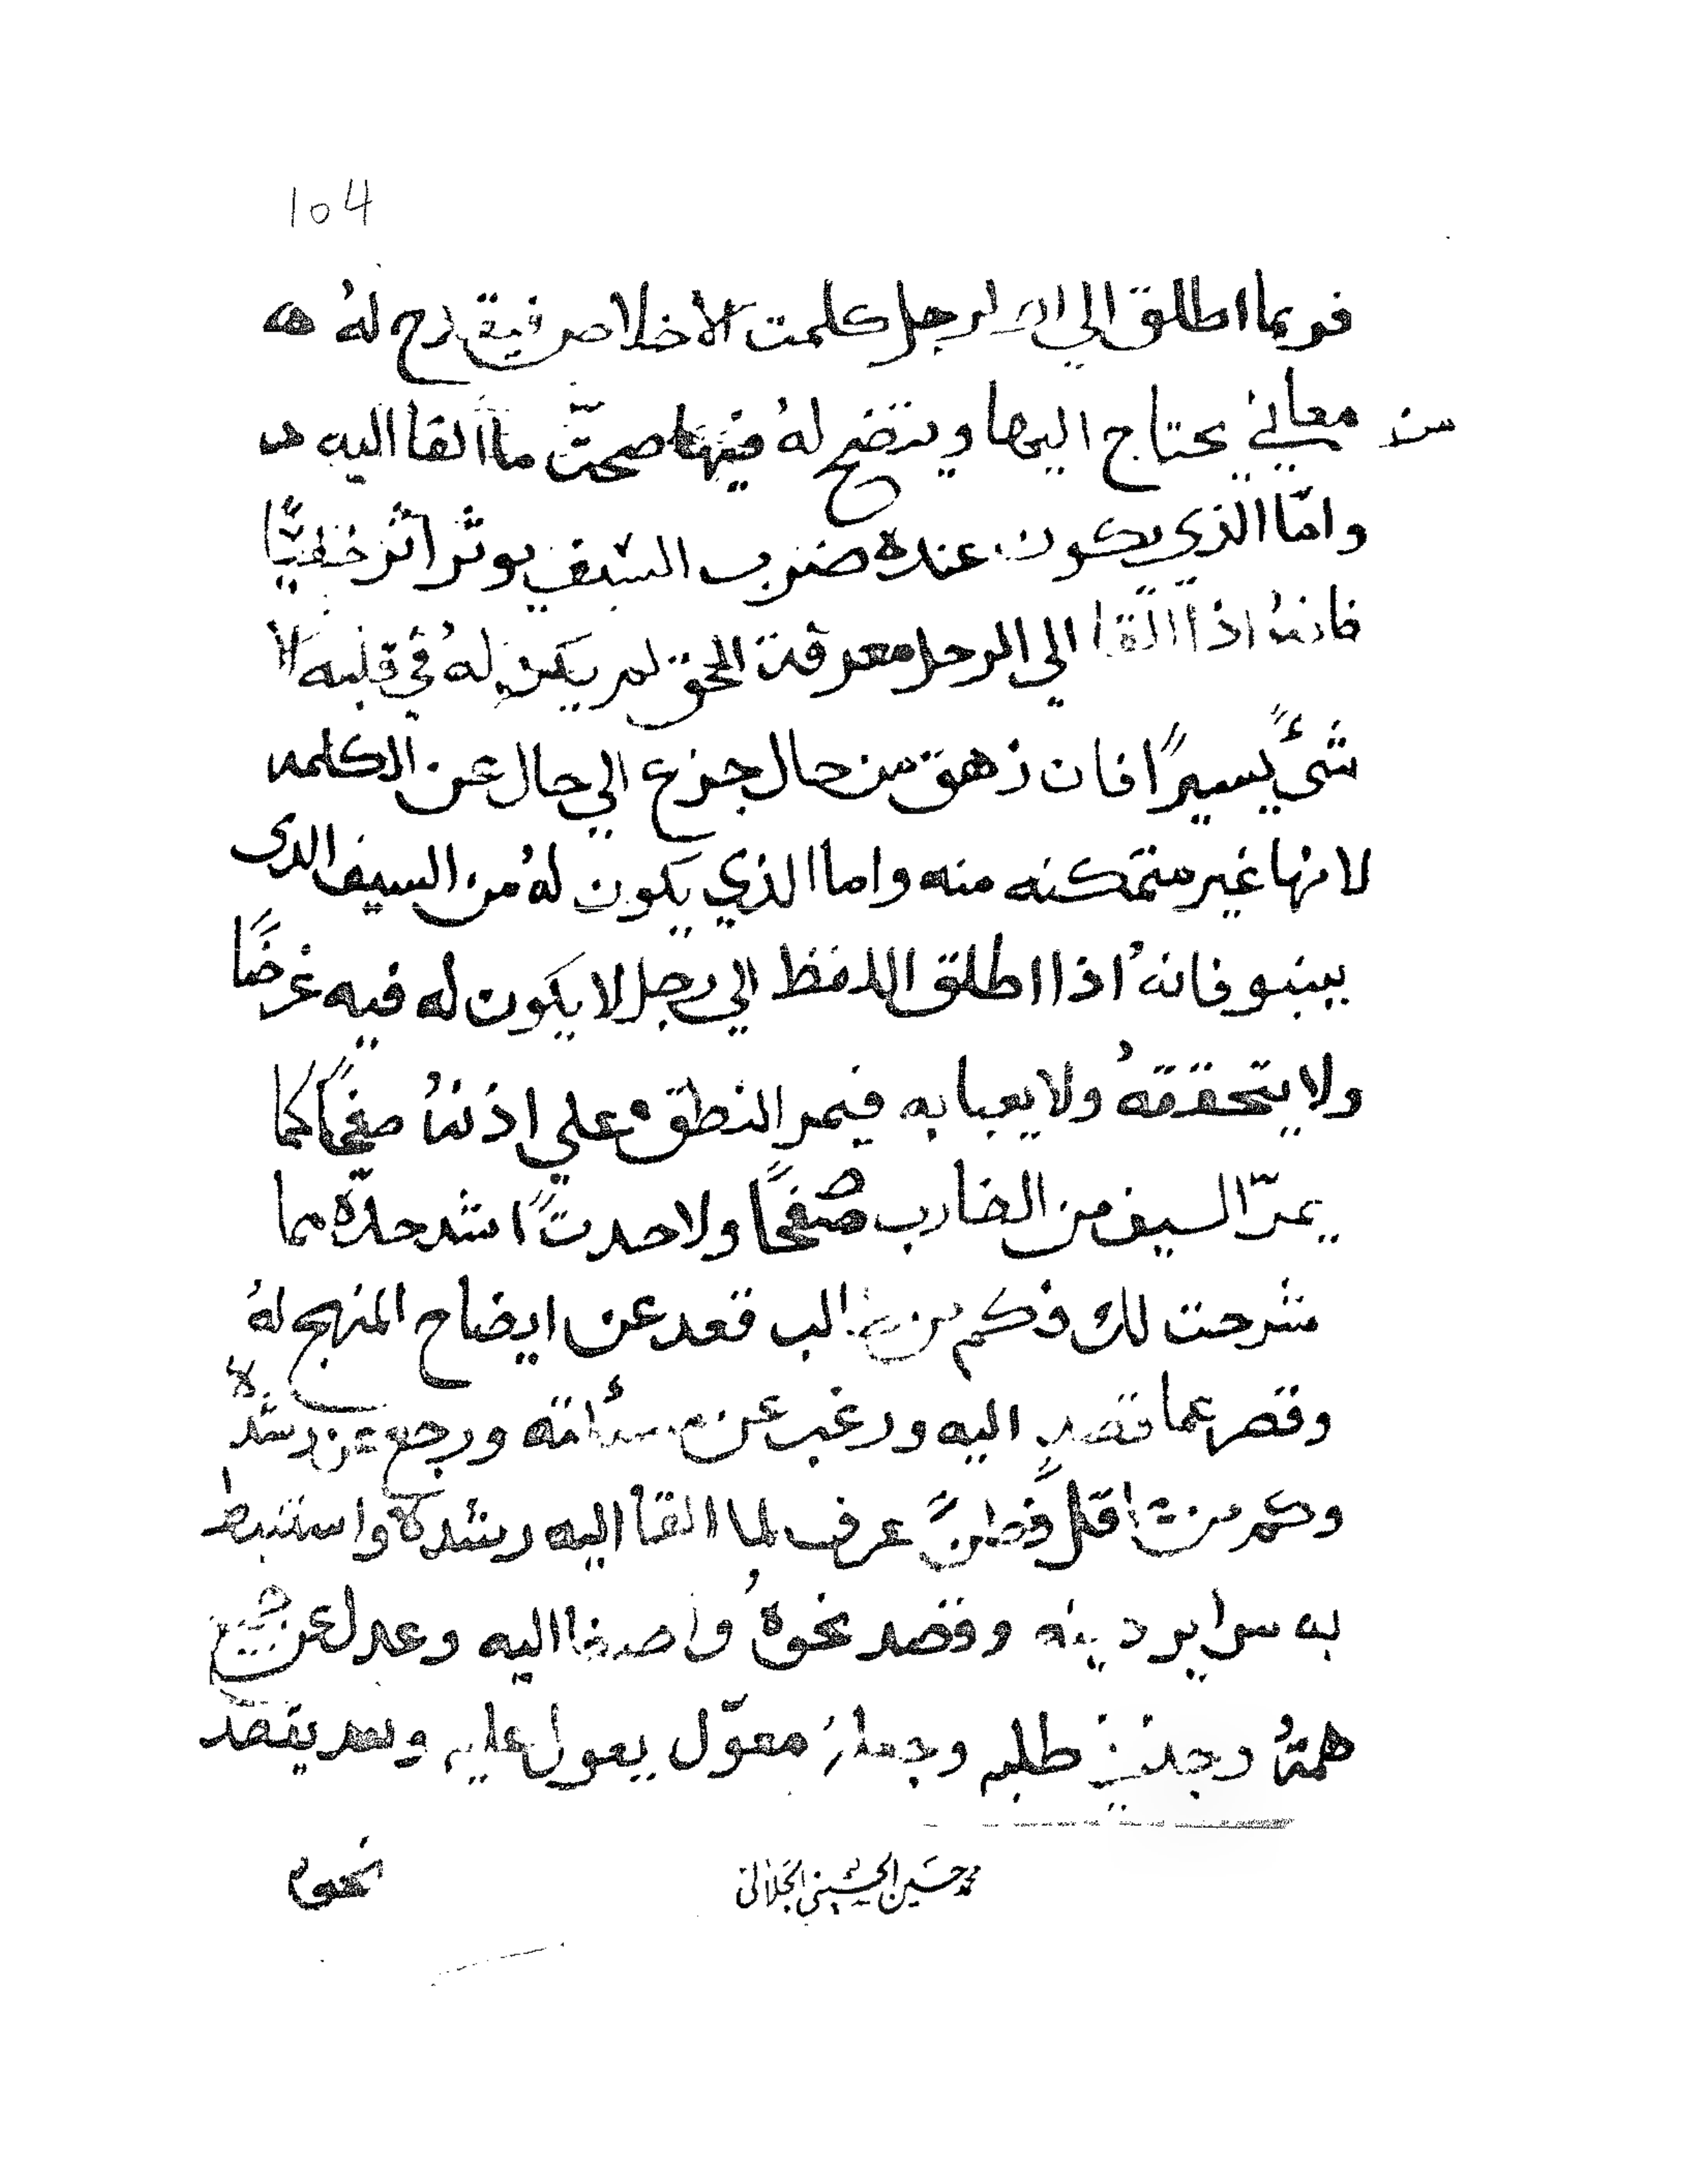 104
فربما اطلق الي الرجل كلمت الاخلاص فيقدح له
من معاني يحتاج اليها ويتضح لهُ فيها صحتّ ما القا اليه
وامّا الذي يكون عنده ضرب السيف يوثر اثر خفيًّا
فانهُ اذا القا الي الرجل معرفت الحق لم يكن لهُ في قلبه الا
شيءً يسيرًا فان زهق من حال جزع الي حال عن الكلمه
لانها غير متمكنه منه واما الذي يكون لهُ من السيف الذى
ينبو فانهُ اذا اطلق اللفظ الي رجل لا يكون له فيه غرضًا
ولا يتحققهُ ولا يعبا به فيمر النطق علي اذنهُ صفحًا كما
يمرّ السيف من الضارب صفحًا ولا حدتً اشد حدّه مما
شرحت لك فكم من طالب قعد عن ايضاح المنهج لهُ
وقصر عما قصد اليه ورغب عن مسئلته ورجع عن رشده
وكم من عاقل فطنً عرف لما القا اليه رشده واستنبط
به سراير دينه وقصد نحوهُ واصغا اليه وعدل عن
همتهُ وجد في طلبه وجعلهُ معوّل يعول عليه وبعد يقصد
نحوه
محمد حسين الحسيني الجلالي